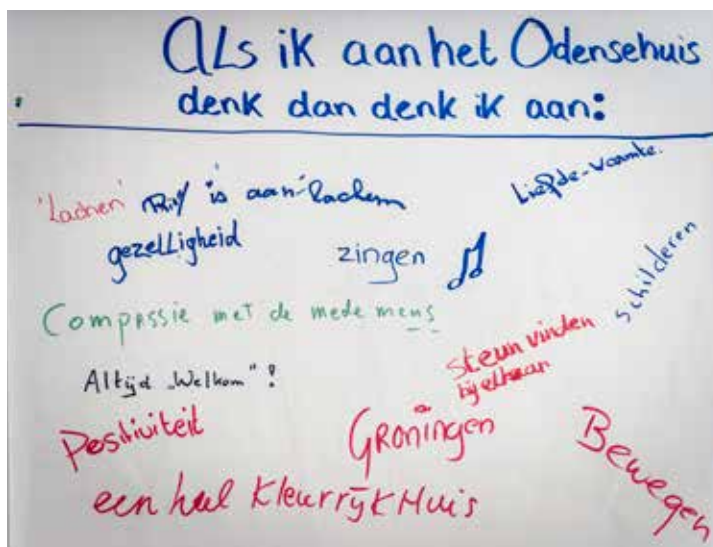 Als ik aan het Odensehuis
denk dan denk ik aan:
Liefde-warmte.
'Lachen' is aan
gezelligheid
zingen
schilderen
Compassie met de mede mens
steun vinden
bij elkaar
Altijd „Welkom"!
Positiviteit
Groningen
Bewegen
een heel kleurrijk Huis